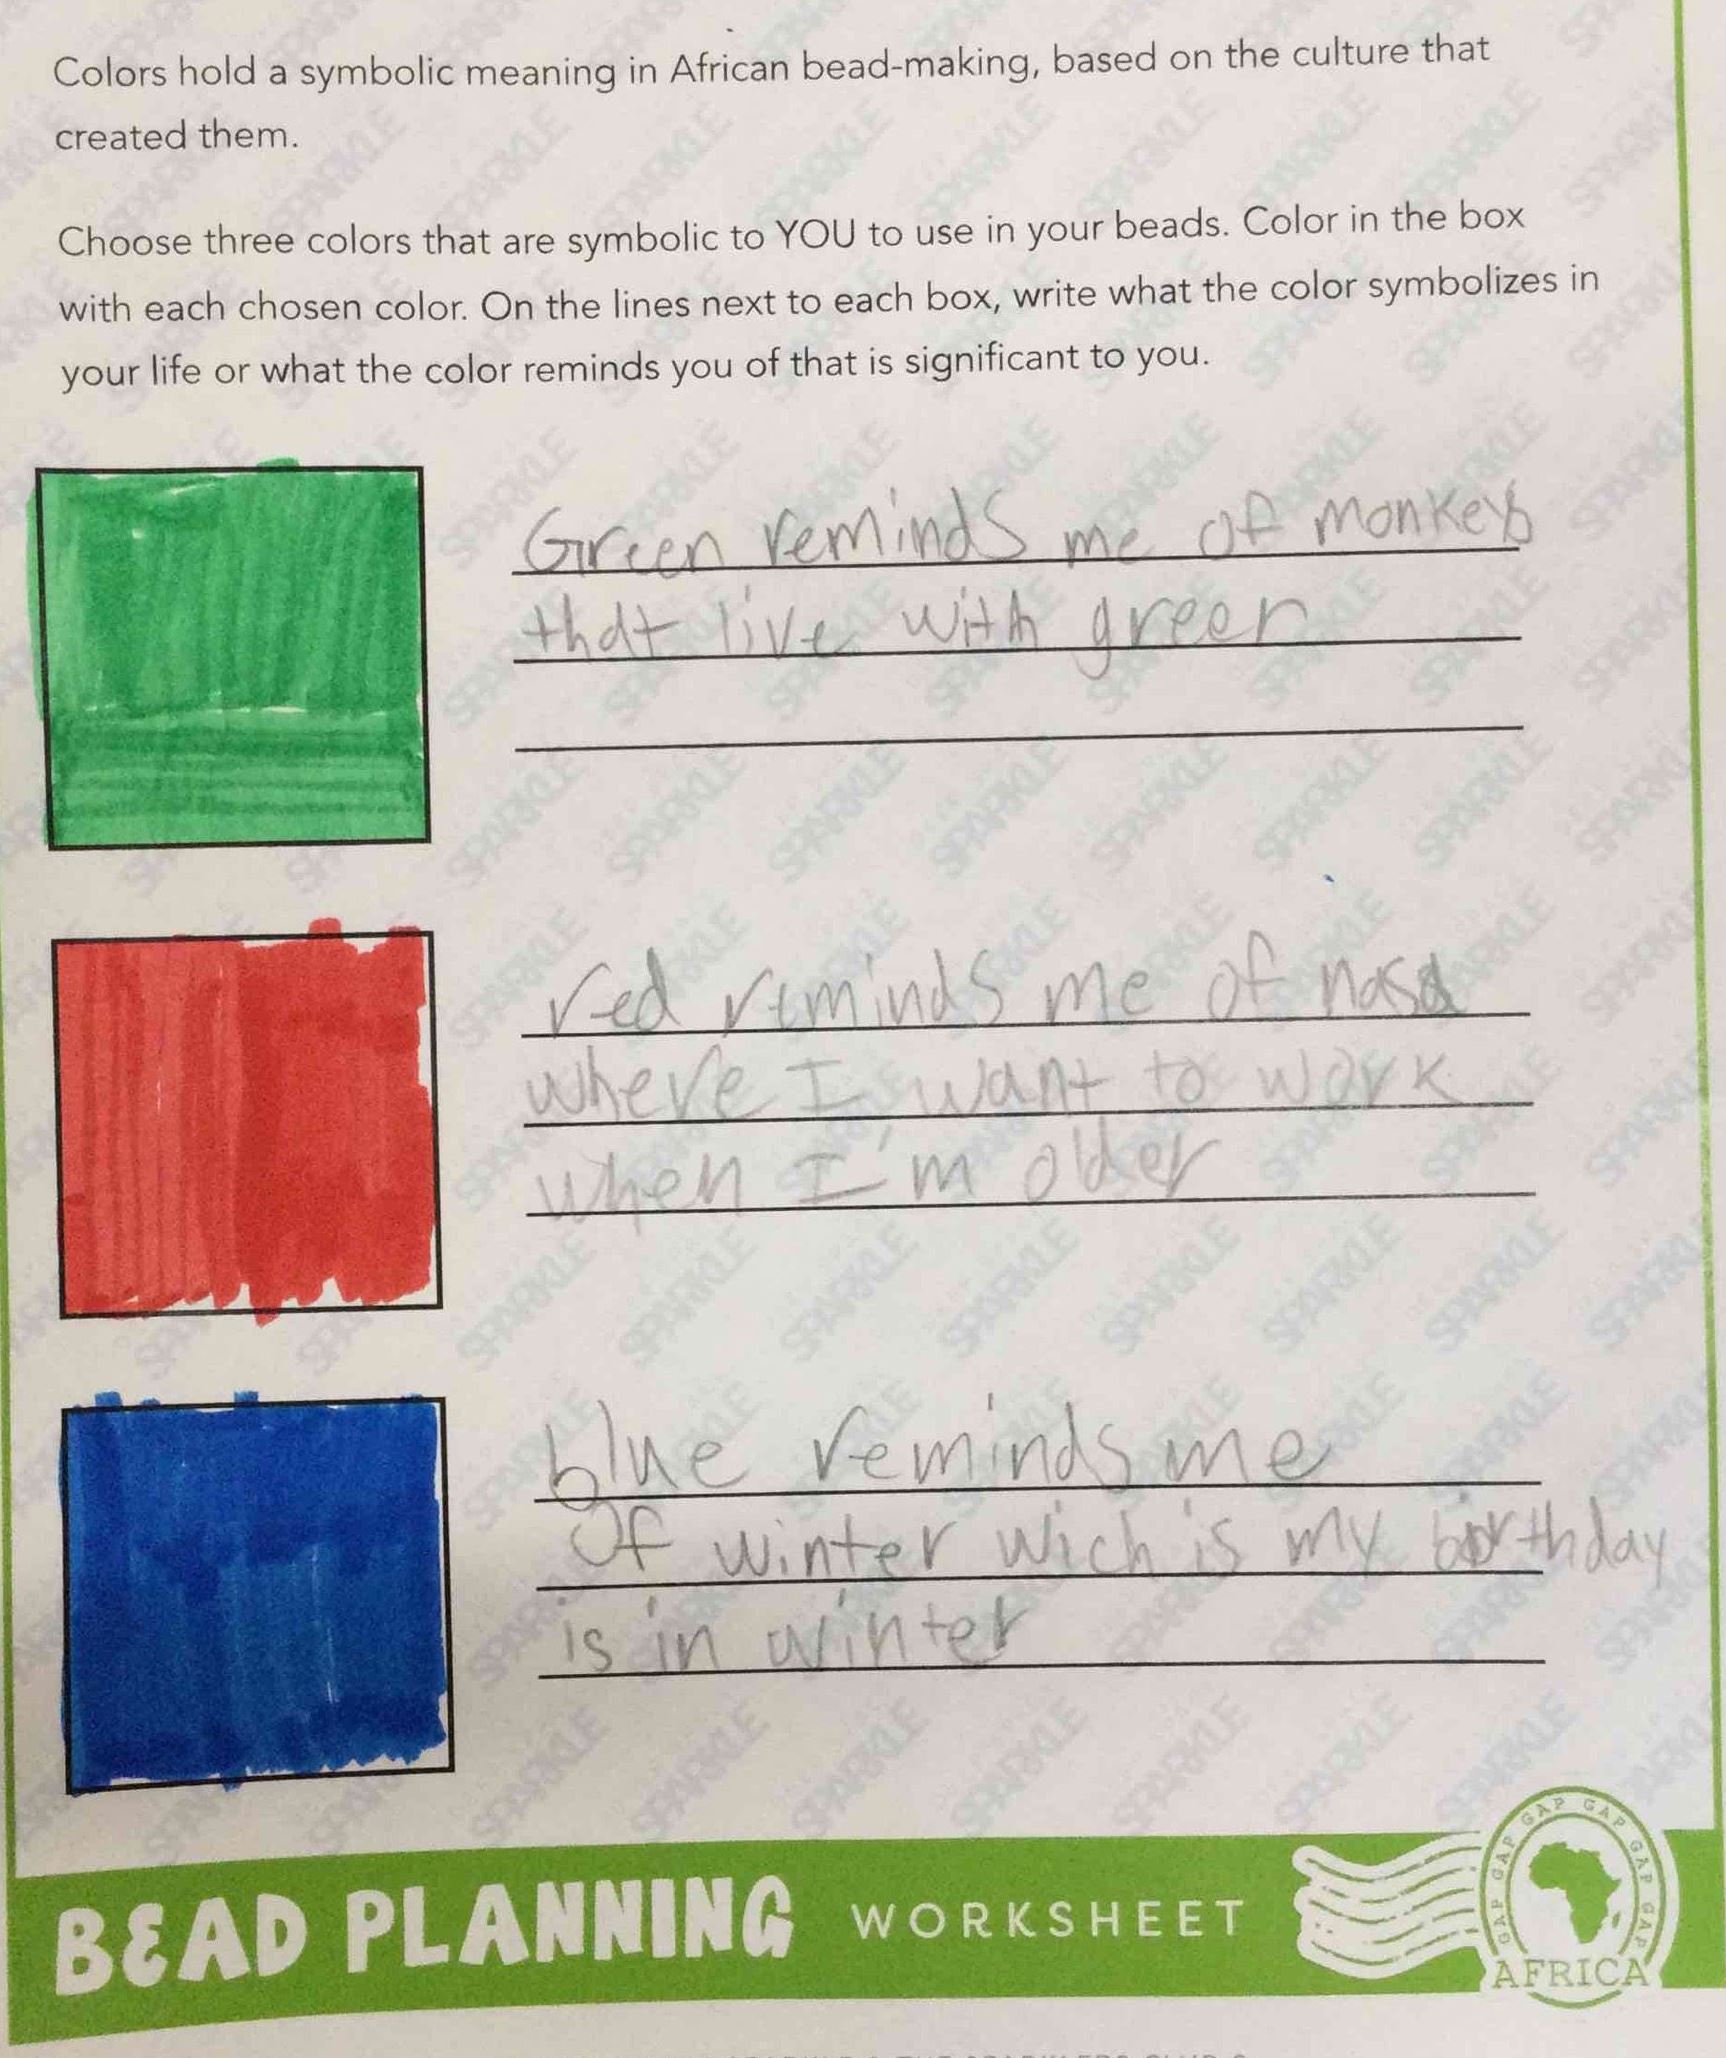 Colors hold a symbolic meaning in African bead-making, based on the culture that
created them.
Choose three colors that are symbolic to YOU to use in your beads. Color in the box
with each chosen color. On the lines next to each box, write what the color symbolizes in
your life or what the color reminds you of that is significant to you.
Green reminds me of monkeys
that live with green
red reminds me of nasa
where I want to work
when I'm older
blue reminds me
Of winter wich is my birthday
is in winter
BEAD PLANNING WORKSHEET
GAP GAP GAP GAP GAP GAP GAP
AFRICA
SPARKLE